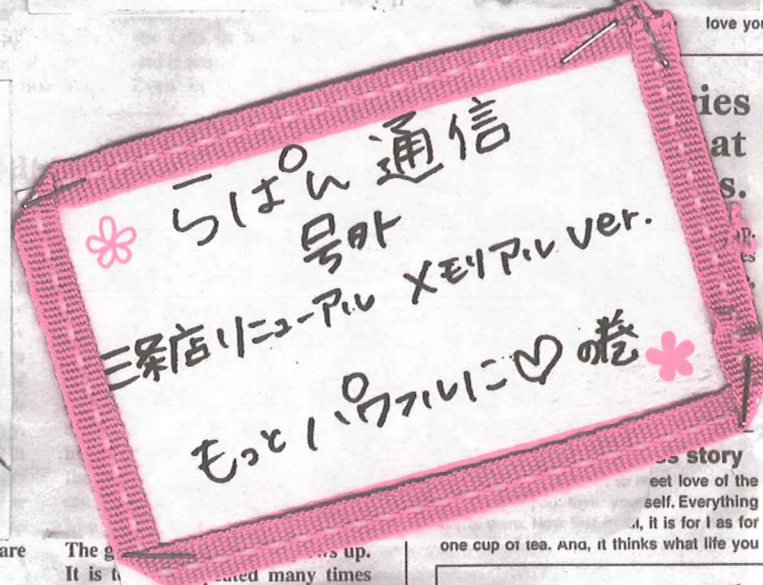 love you
ries
at
s.
らぱん通信
号外
三条店リニューアル メモリアル ver.
もっとパワフルに♡の巻
story
eet love of the
self. Everything
it is for I as for
one cup of tea. And, it thinks what life you
are
The g
s up.
It is t
ted many times